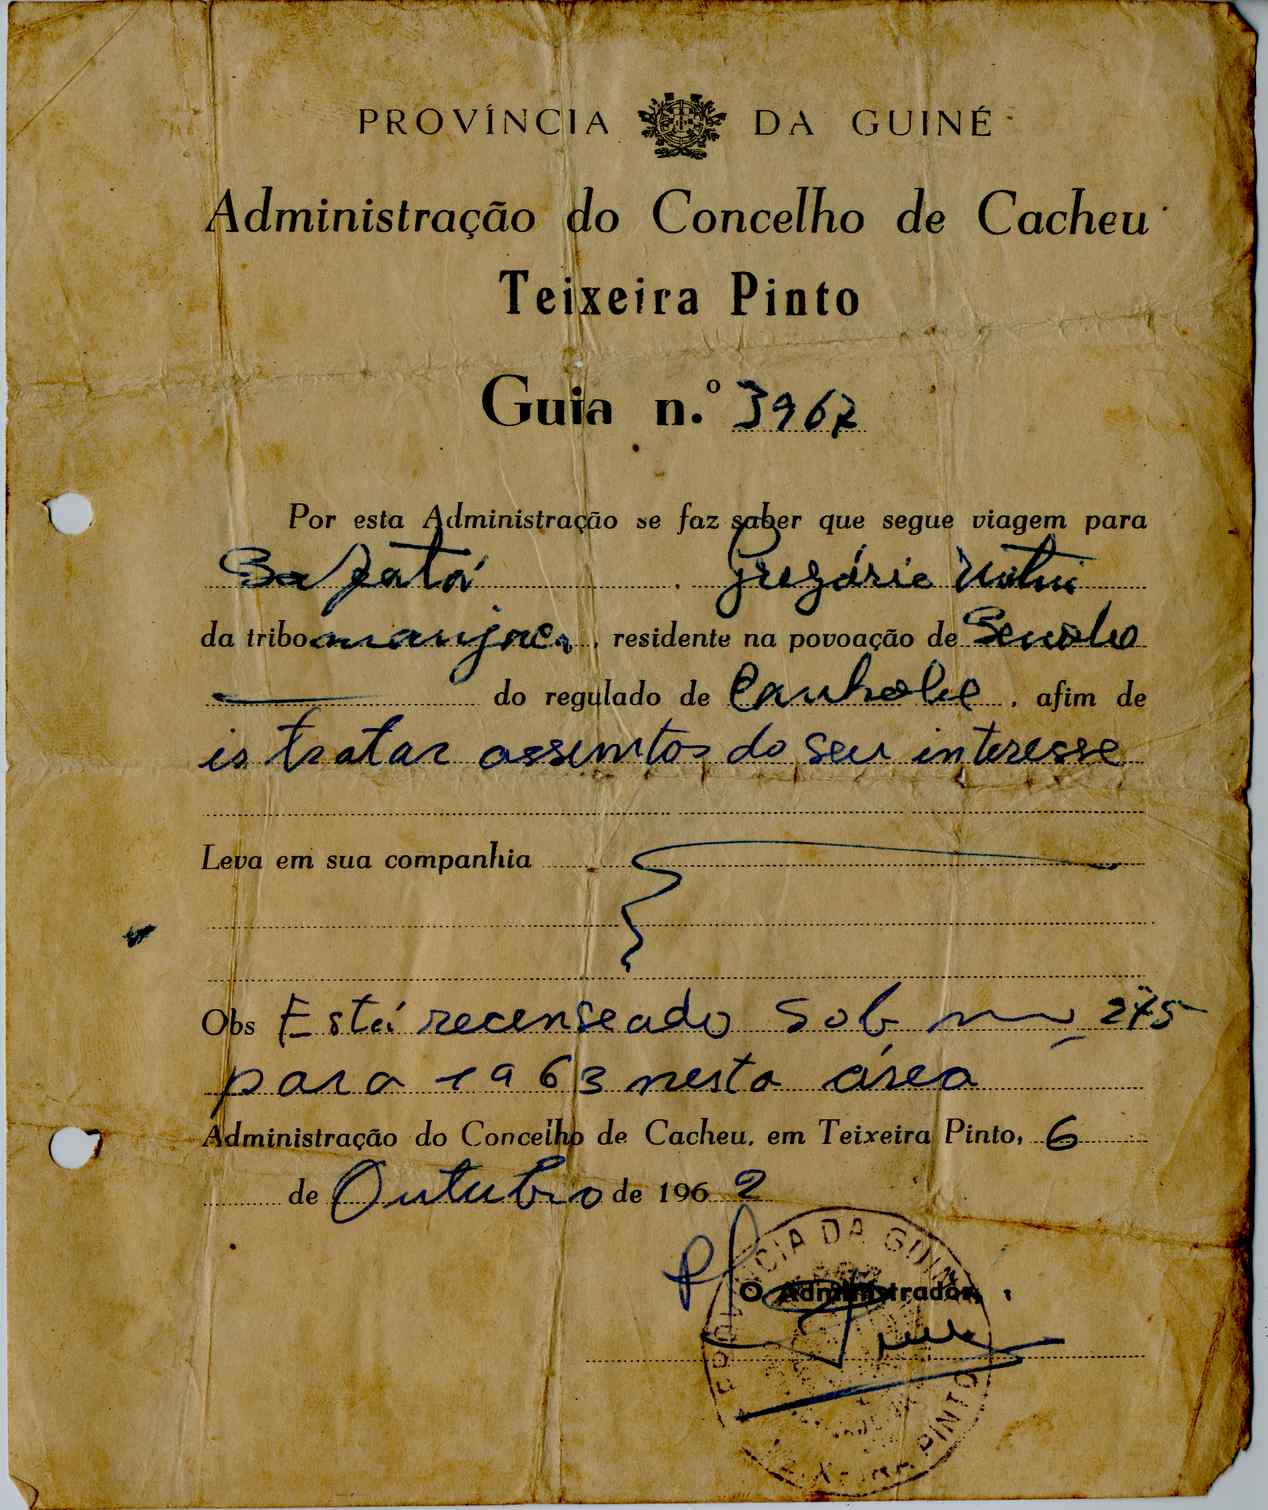 PROVÍNCIA DA GUINÉ
Administração do Concelho de Cacheu
Teixeira Pinto
Guia n.º 3967
Por esta Administração se faz saber que segue viagem para
Gregório
da tribo manjaca, residente na povoação de
do regulado de Canhobe, afim de
ir tratar assuntos do seu interesse
Leva em sua companhia
Obs Está recenseado sob nº 275
para 1963 nesta área
Administração do Concelho de Cacheu, em Teixeira Pinto, 6
de Outubro de 1962
PROVÍNCIA DA GUINÉ
O Administrador,
TEIXEIRA PINTO